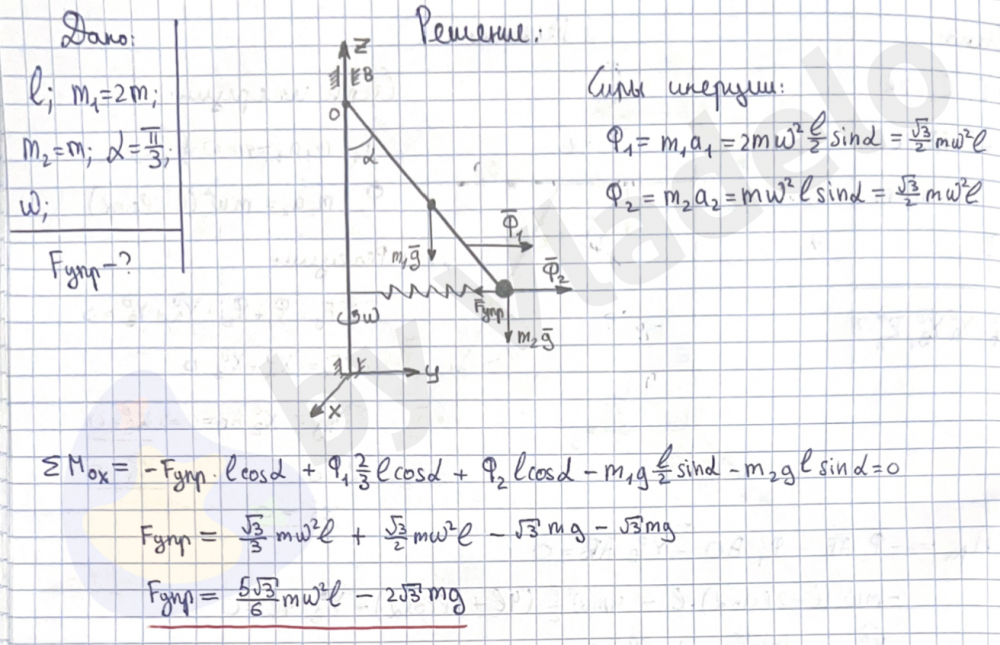 Дано:
l; m₁=2m;
m₂=m; α=π/3;
ω;
Fупр-?
Решение:
Z
B
O
α
m₁g̅
Φ̅₁
Φ̅₂
Fупр
m₂g̅
ω
y
x
Силы инерции:
Φ₁= m₁a₁= 2mω² l/2 sinα = √3/2 mω²l
Φ₂= m₂a₂= mω² l sinα = √3/2 mω²l
ΣMox= -Fупр·lcosα + Φ₁ 2/3 lcosα + Φ₂ lcosα - m₁g l/2 sinα - m₂g l sinα=0
Fупр= √3/3 mω²l + √3/2 mω²l - √3 mg - √3 mg
Fупр= 5√3/6 mω²l - 2√3 mg
by vladelo